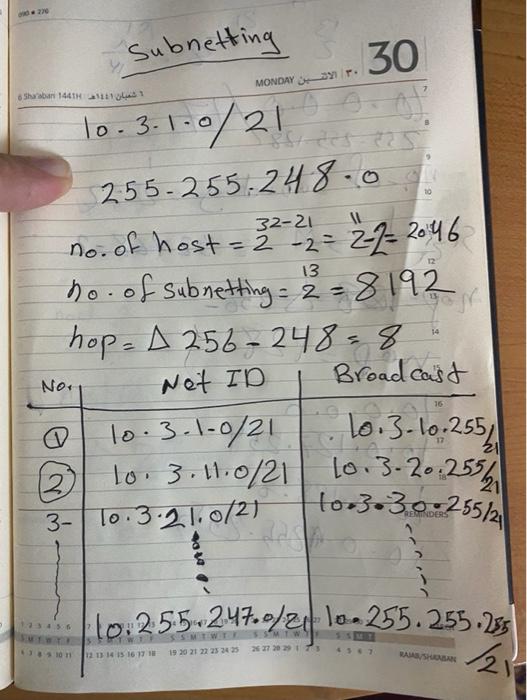 Subnetting
MONDAY الاثنين ٣٠ 30
6 Sha'aban 1441H
7
10.3.1.0/21
8
9
255.255.248.0
10
no. of host = 2^32-21 -2 = 2^11-2 = 2046
12
no. of Subnetting = 2^13 = 8192
13
hop = Δ 256 - 248 = 8
14
No. Net ID Broadcast
16
① 10.3.1.0/21 10.3.10.255/21
17
② 10.3.11.0/21 10.3.20.255/21
18
3- 10.3.21.0/21 10.3.30.255/21
REMINDERS
10.255.247.0/21 10.255.255.255/21
RAJAB/SHA'ABAN